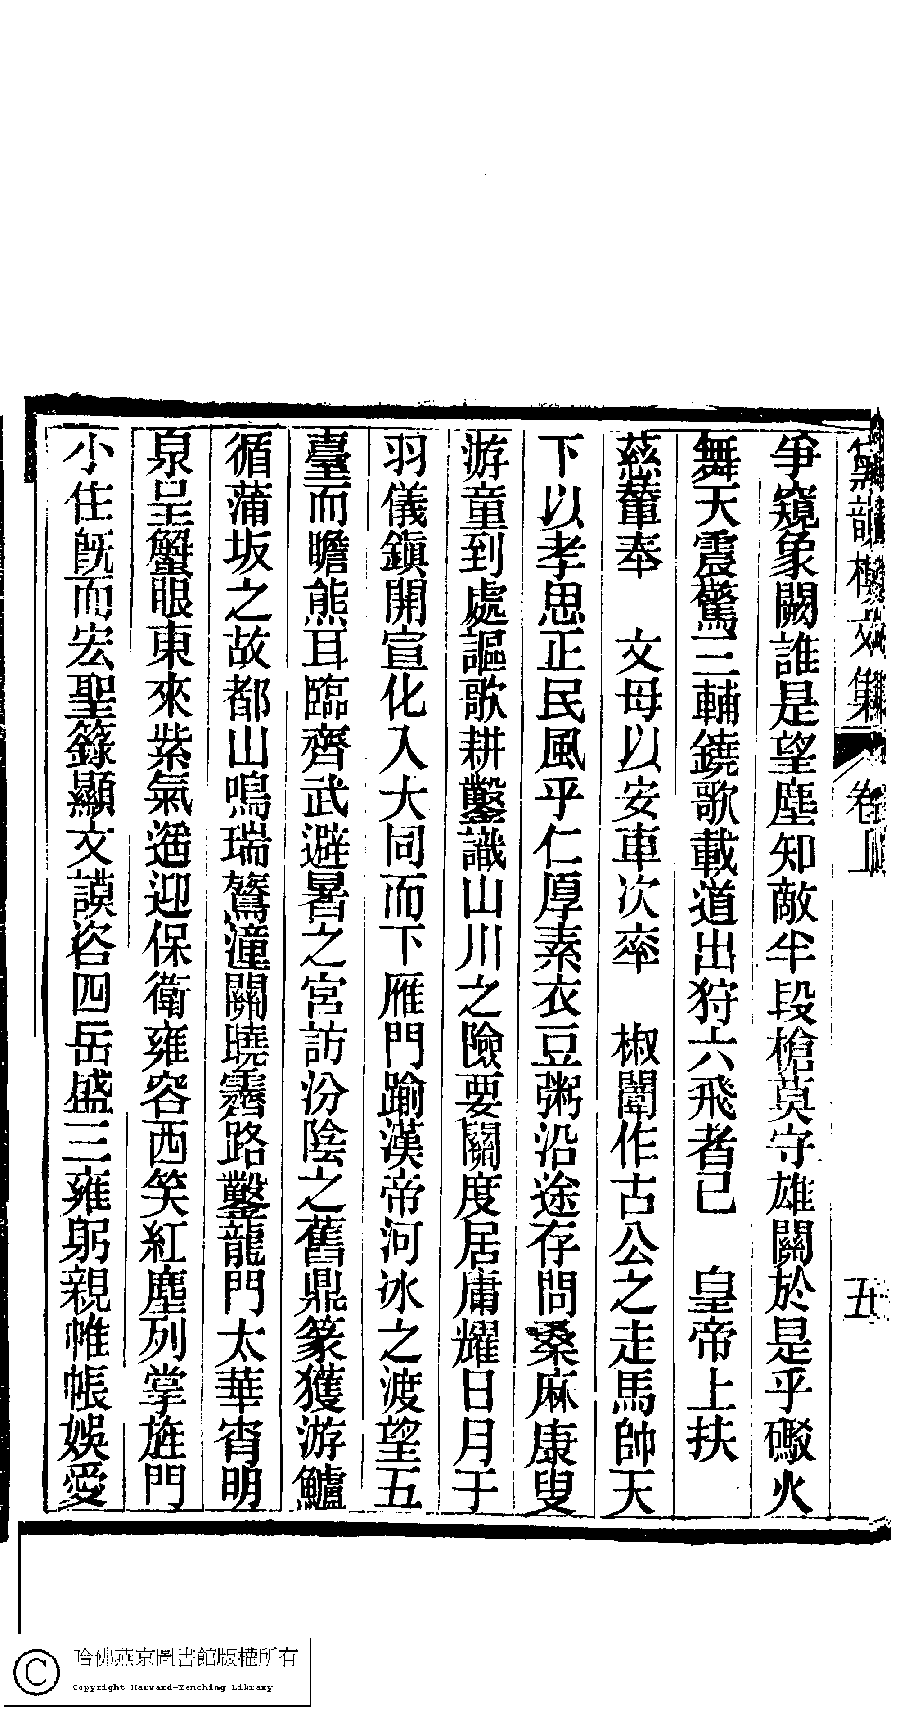 爭窺象闕誰是望塵知敵半段槍莫守雄關於是乎礮火
舞天震驚三輔鐃歌載道出狩六飛者已　皇帝上扶
慈輦奉　文母以安車次率　椒闈作古公之走馬帥天
下以孝思正民風乎仁厚素衣豆粥沿途存問桑麻康叟
游童到處謳歌耕鑿識山川之險要關度居庸耀日月于
羽儀鎮開宣化入大同而下雁門踰漢帝河冰之渡望五
臺而瞻熊耳臨齊武避暑之宮訪汾陰之舊鼎篆獲游鱸
循蒲坂之故都山鳴瑞鷟潼關曉霽路鑿龍門太華宵明
泉呈蟹眼東來紫氣迺迎保衛雍容西笑紅塵列掌旌門
小住旣而宏聖籙顯文謨咨四岳盛三雍躬親帷帳娛愛
文集　卷上
五
哈佛燕京圖書館版權所有
Copyright Harvard-Yenching Library